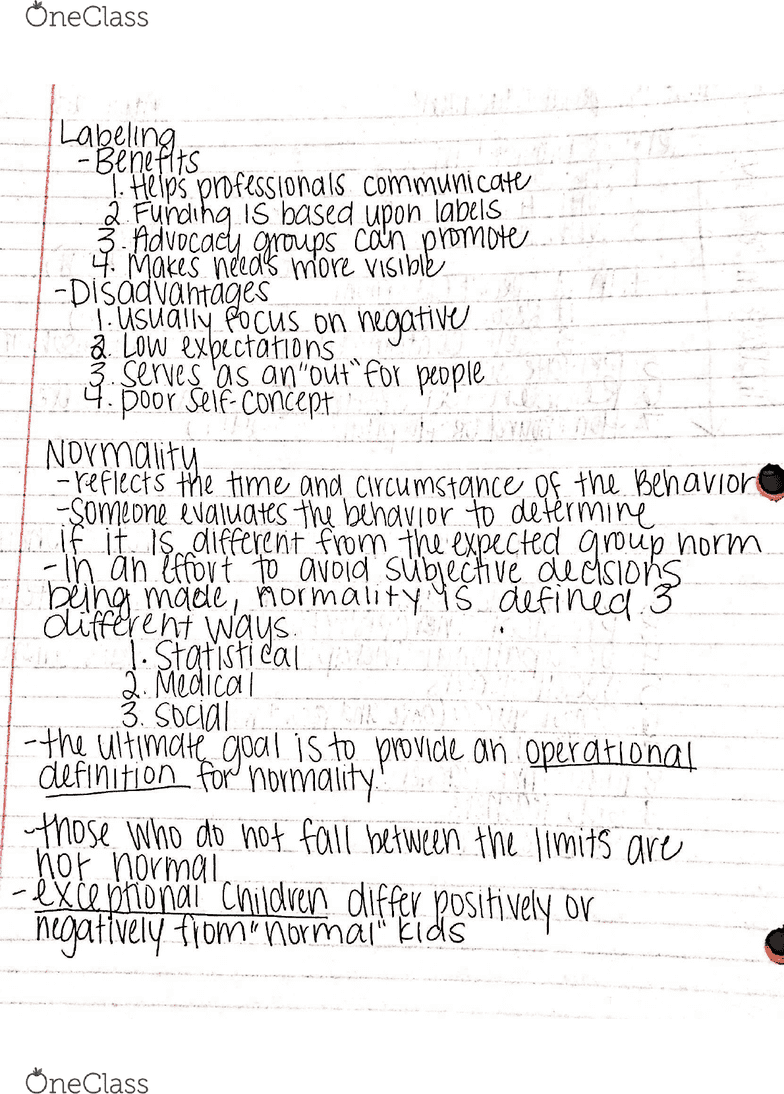 OneClass
Labeling
- Benefits
1. Helps professionals communicate
2. Funding is based upon labels
3. Advocacy groups can promote
4. Makes needs more visible
- Disadvantages
1. usually focus on negative
2. Low expectations
3. serves as an "out" for people
4. poor self-concept
Normality
- reflects the time and circumstance of the Behavior
- Someone evaluates the behavior to determine
if it is different from the expected group norm
- In an effort to avoid subjective decisions
being made, normality is defined 3
different ways.
1. Statistical
2. Medical
3. social
- the ultimate goal is to provide an operational
definition for normality.
- those who do not fall between the limits are
not normal
- exceptional children differ positively or
negatively from "normal" kids
OneClass